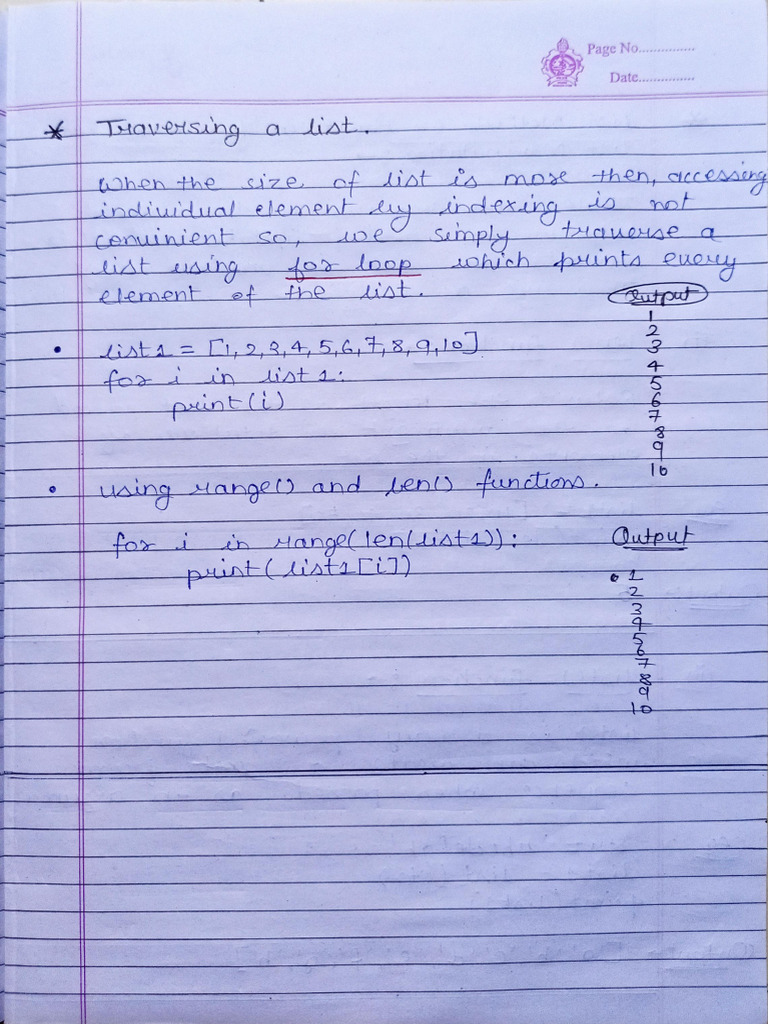 Page No...............
Date...............
* Traversing a list.
when the size of list is more then, accessing
individual element by indexing is not
convinient so, we simply traverse a
list using for loop which prints every
element of the list.
• list1 = [1, 2, 3, 4, 5, 6, 7, 8, 9, 10]
for i in list1:
print(i)
Output
1
2
3
4
5
6
7
8
9
10
• using range() and len() functions.
for i in range(len(list1)):
print(list1[i])
Output
• 1
2
3
4
5
6
7
8
9
10